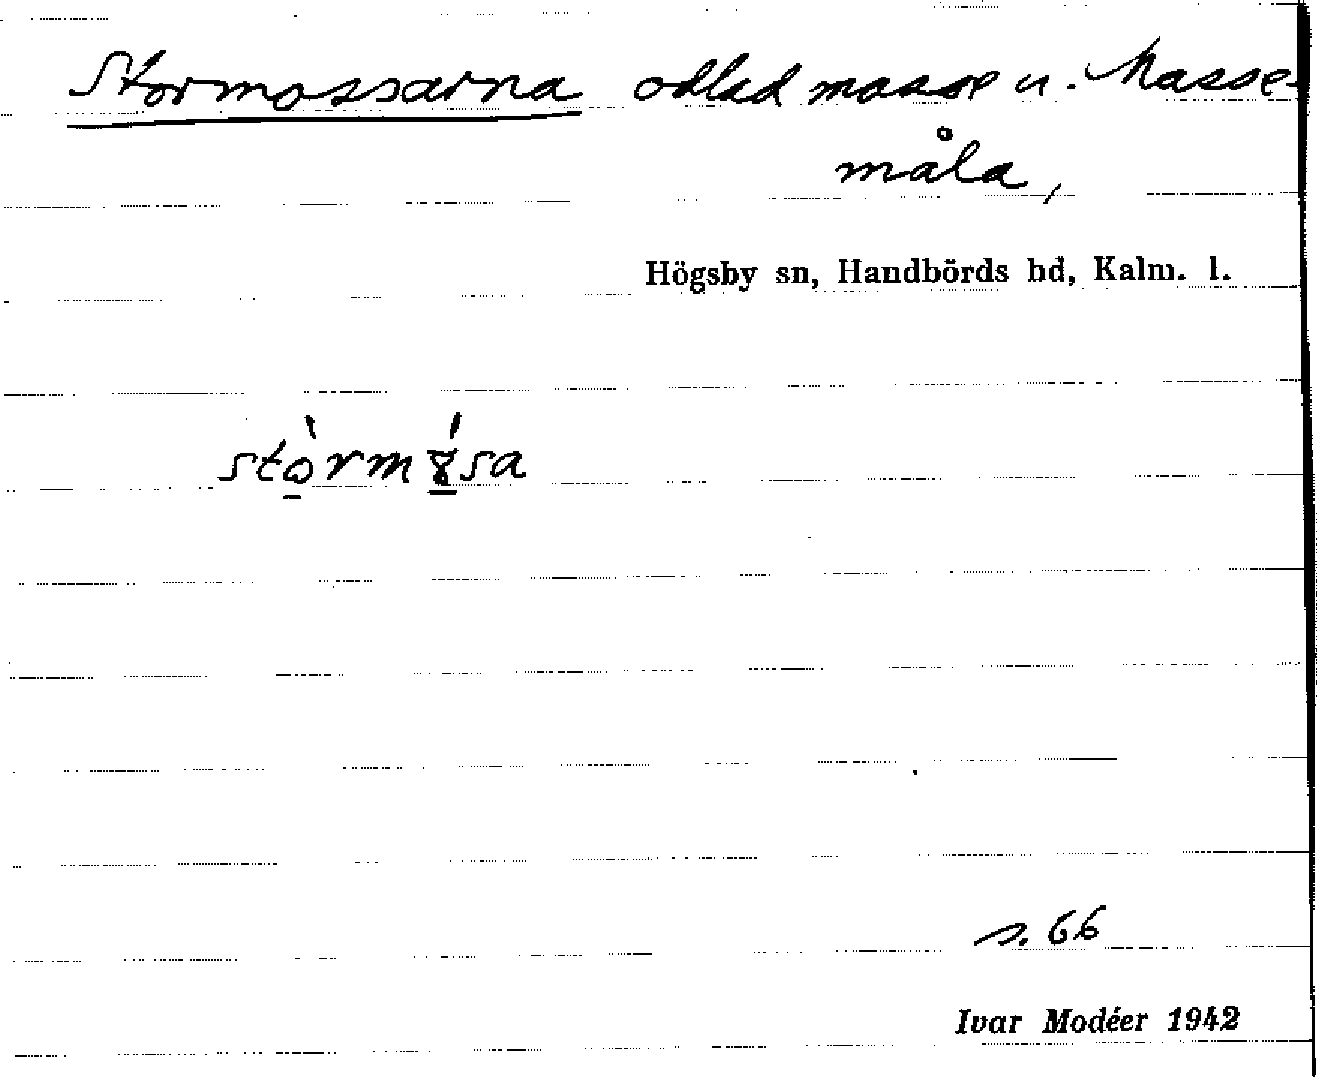 Stormossarna odlad mosse u. Masse-
måla,
Högsby sn, Handbörds hd, Kalm. l.
s. 66
Ivar Modéer 1942